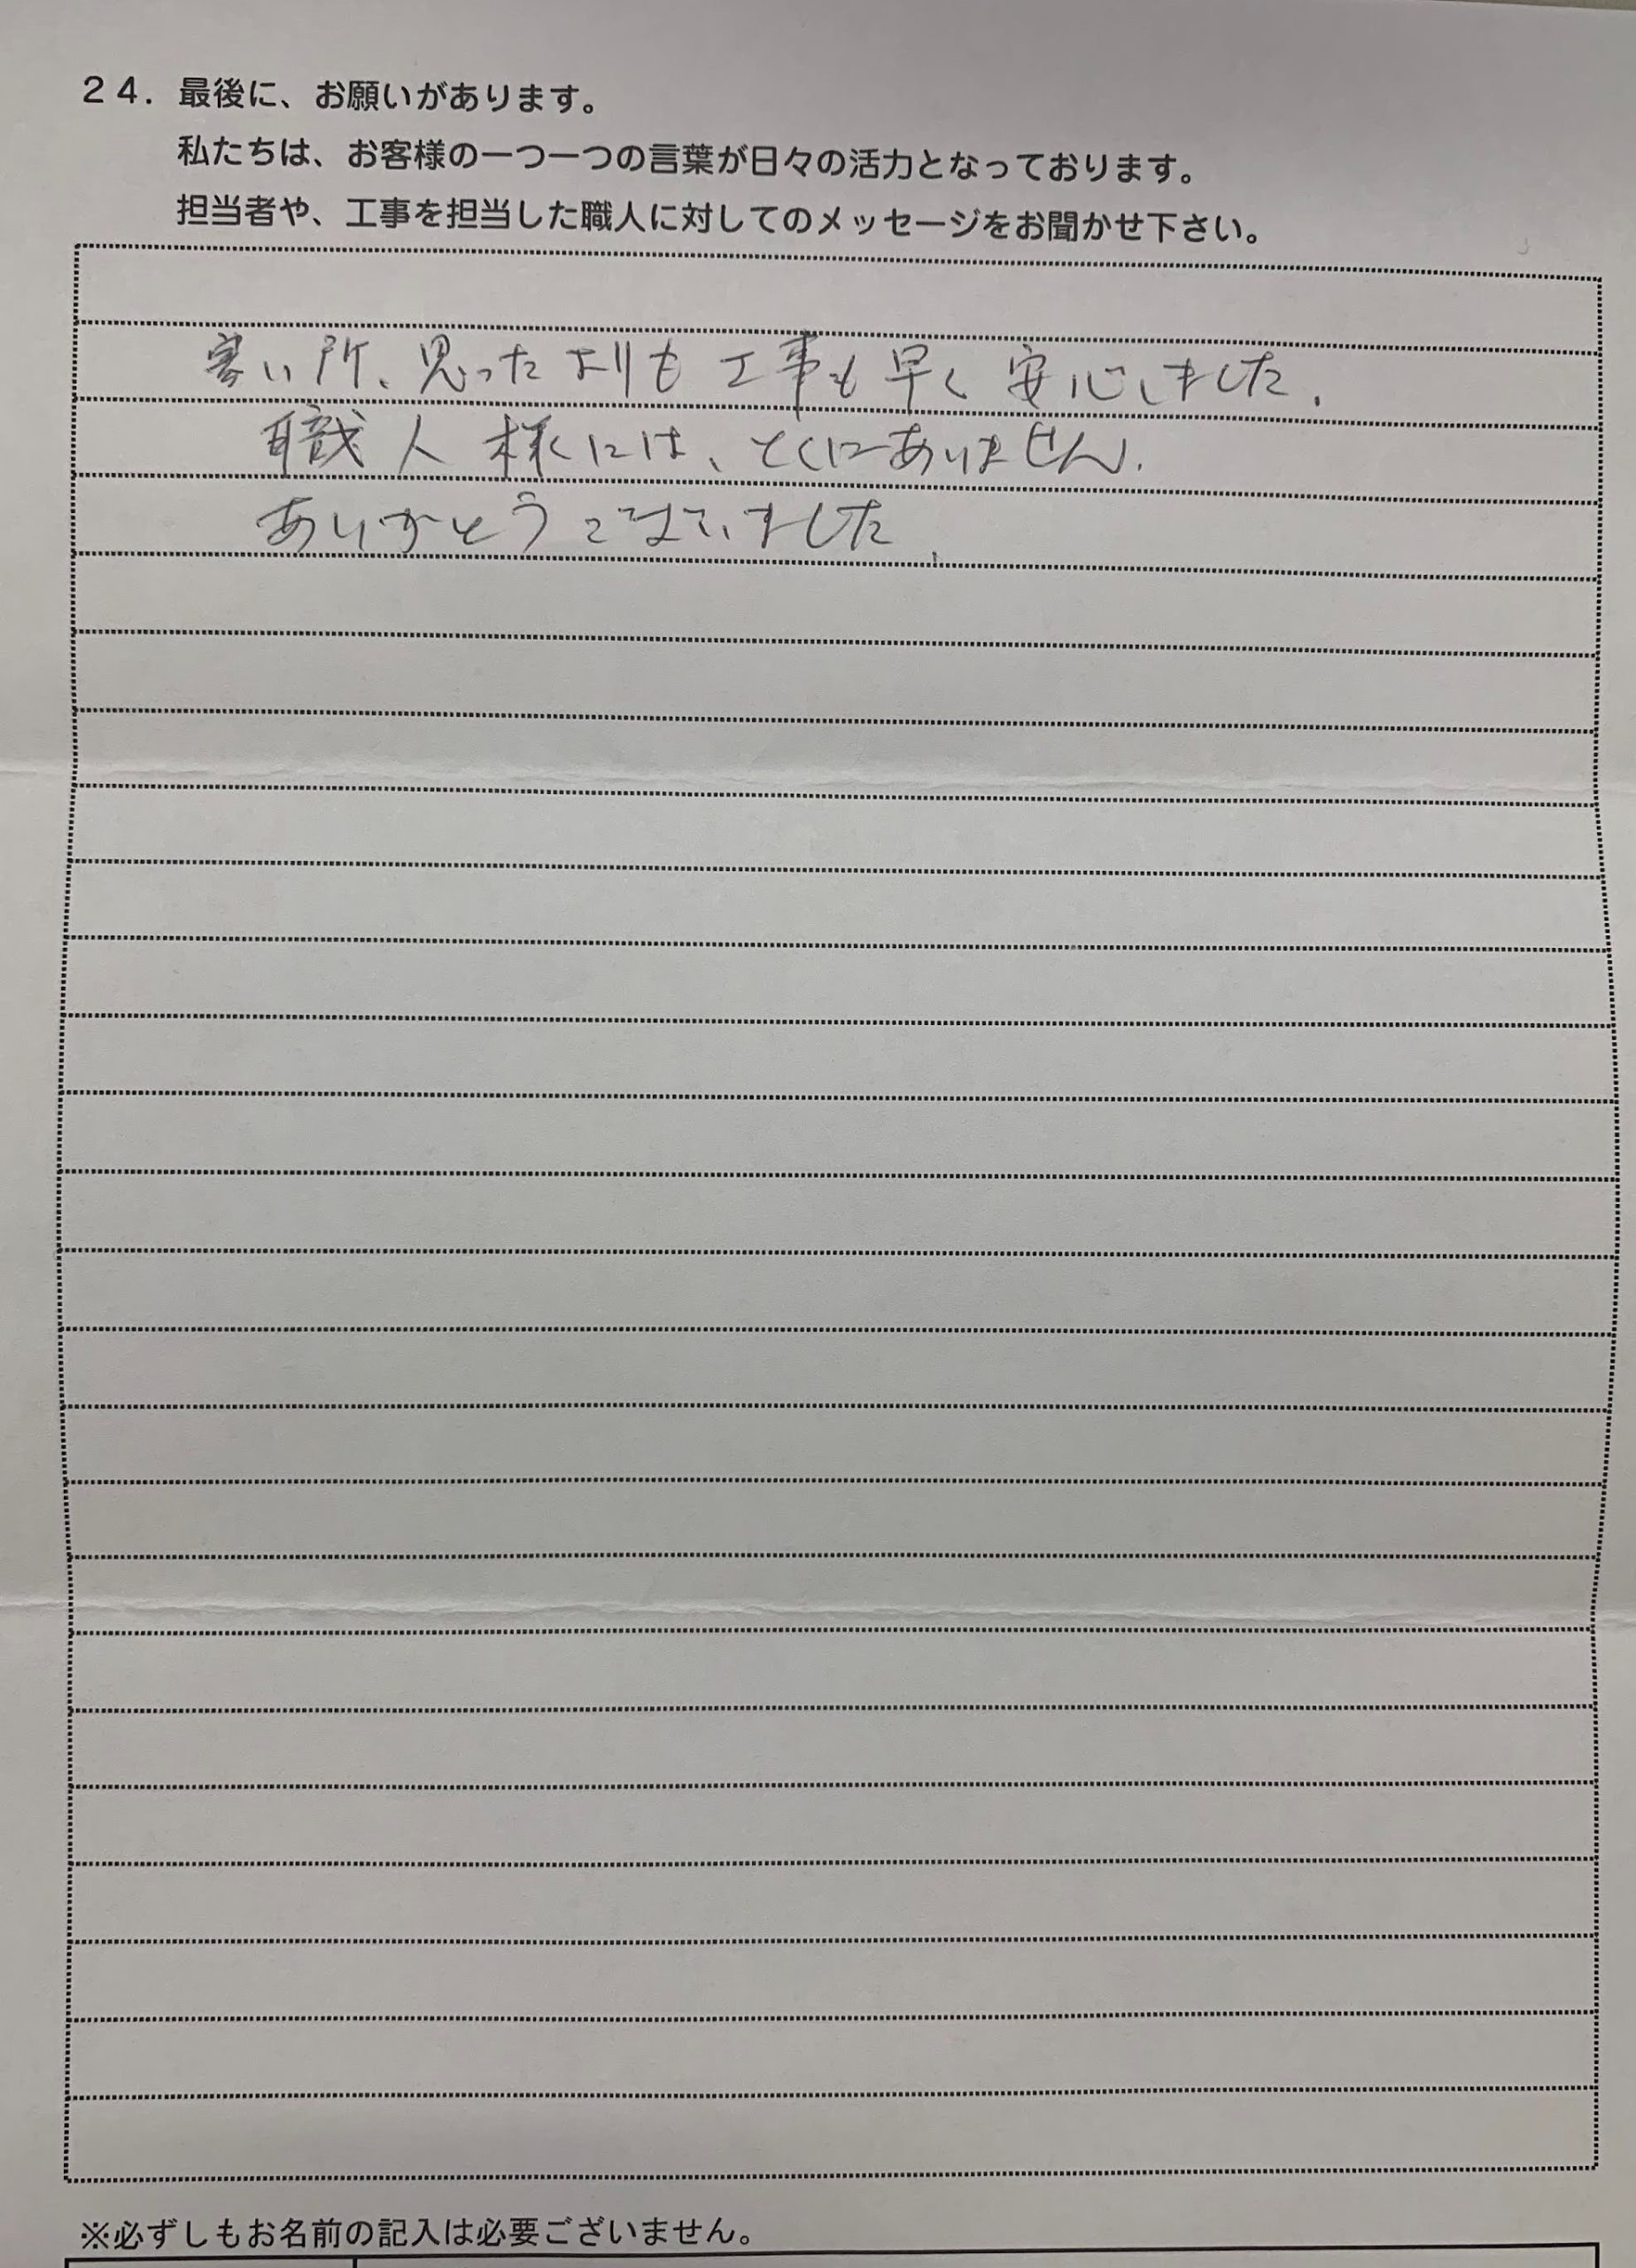 24. 最後に、お願いがあります。
私たちは、お客様の一つ一つの言葉が日々の活力となっております。
担当者や、工事を担当した職人に対してのメッセージをお聞かせ下さい。
寒い所、思ったよりも工事も早く安心しました。
職人様には、とくにありません。
ありがとうございました。
※必ずしもお名前の記入は必要ございません。